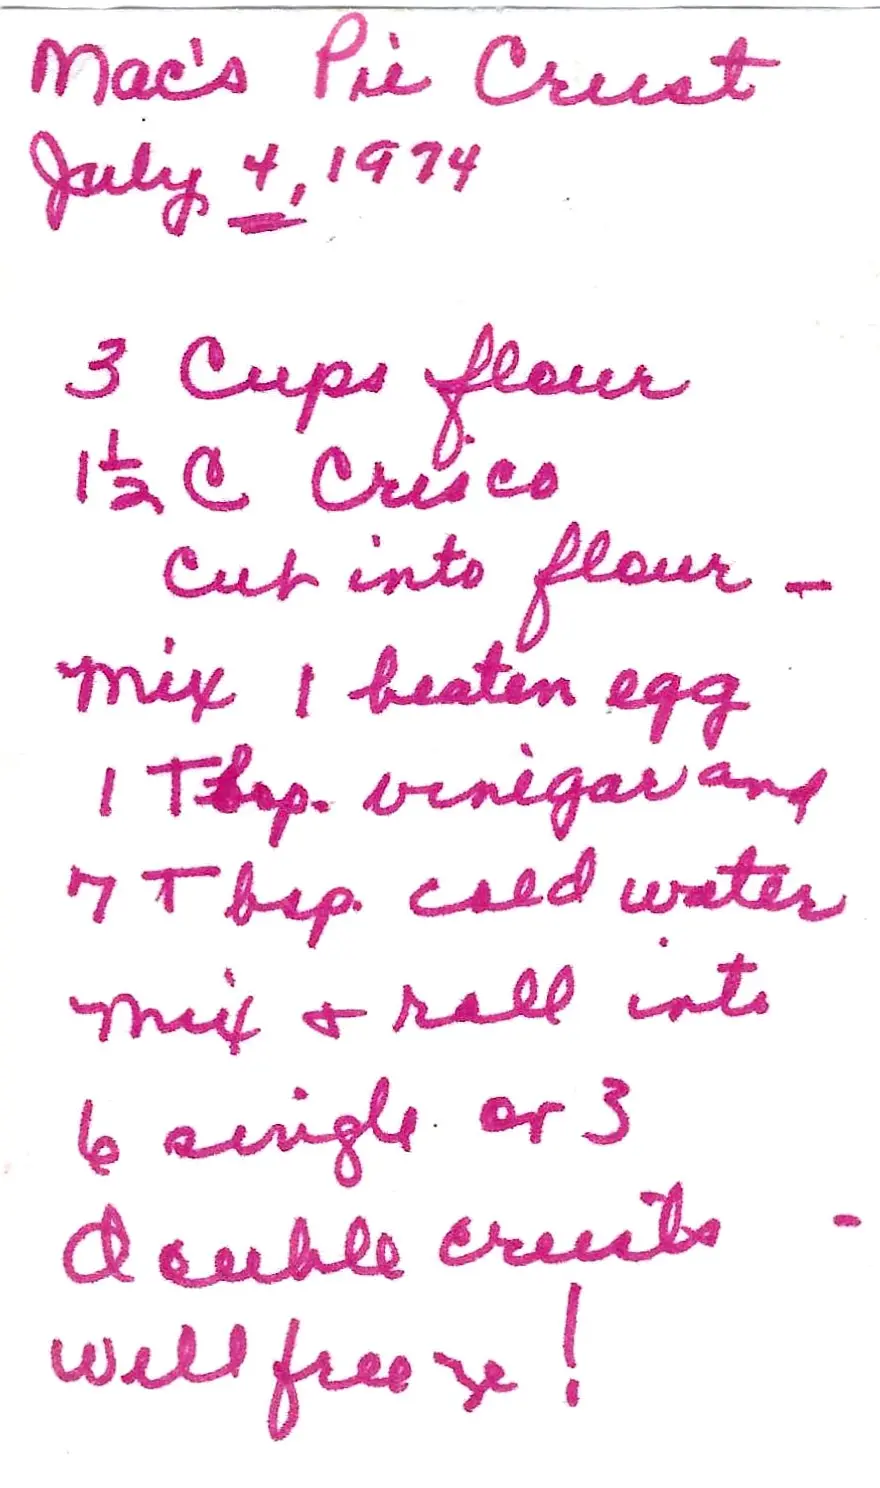 Mac's Pie Crust
July 4, 1974
3 Cups flour
1 1/2 C Crisco
Cut into flour -
Mix 1 beaten egg
1 Tbsp. vinegar and
7 Tbsp. cold water
Mix + roll into
6 single or 3
double crusts -
Will freeze!